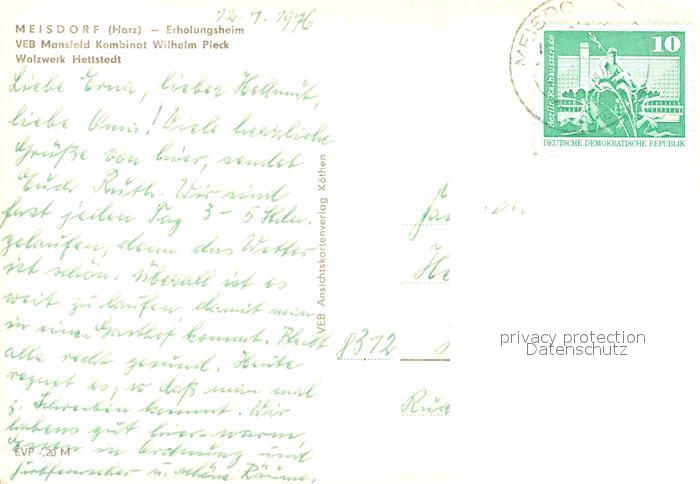 12.1.1976
MEISDORF (Harz) – Erholungsheim
VEB Mansfeld Kombinat Wilhelm Pieck
Walzwerk Hettstedt
Liebe Erna, lieber Hellmut,
liebe Oma! Viele herzliche
Grüße von hier, sendet
Euch Ruth. Wir sind
fast jeden Tag 3-5 Stdn.
gelaufen, denn das Wetter
ist schön. Überall ist es
weit zu laufen, damit man
in einen Gasthof kommt. Bleibt
alle recht gesund. Heute
regnet es, so daß man mal
z. Schreiben kommt. Wir
habens gut hier. warm,
Essen in Ordnung und
u. schöne Räume.
EVP -,20 M
VEB Ansichtskartenverlag Köthen
MEISDO
Berlin-Rathausstraße
10
DEUTSCHE DEMOKRATISCHE REPUBLIK
Fa
He
8312
Ru
privacy protection
Datenschutz